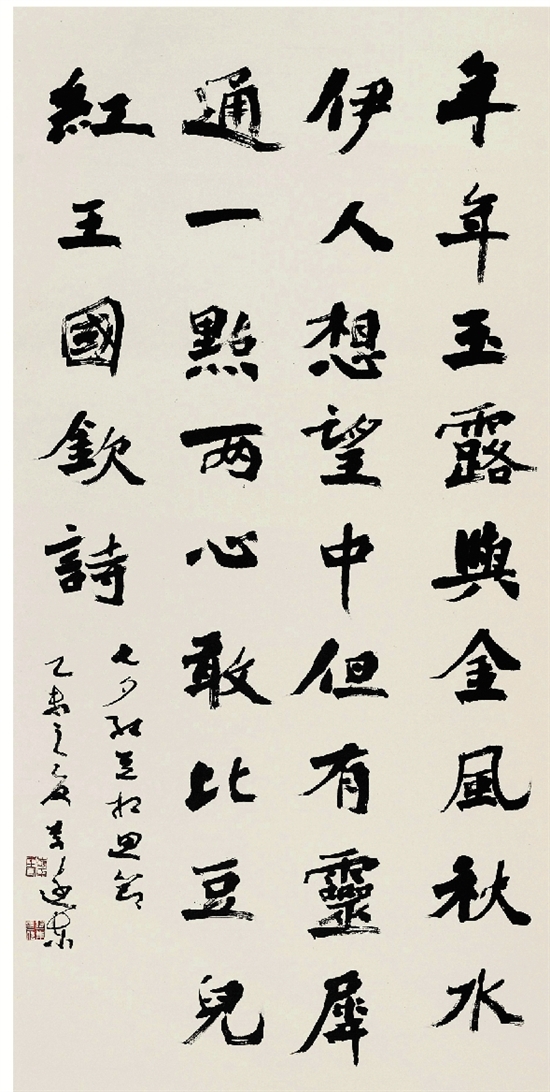 年年玉露與金風秋水
伊人想望中但有靈犀
通一點两心敢比豆兒
紅王國欽詩
七夕紅豆相思節
乙未之夏